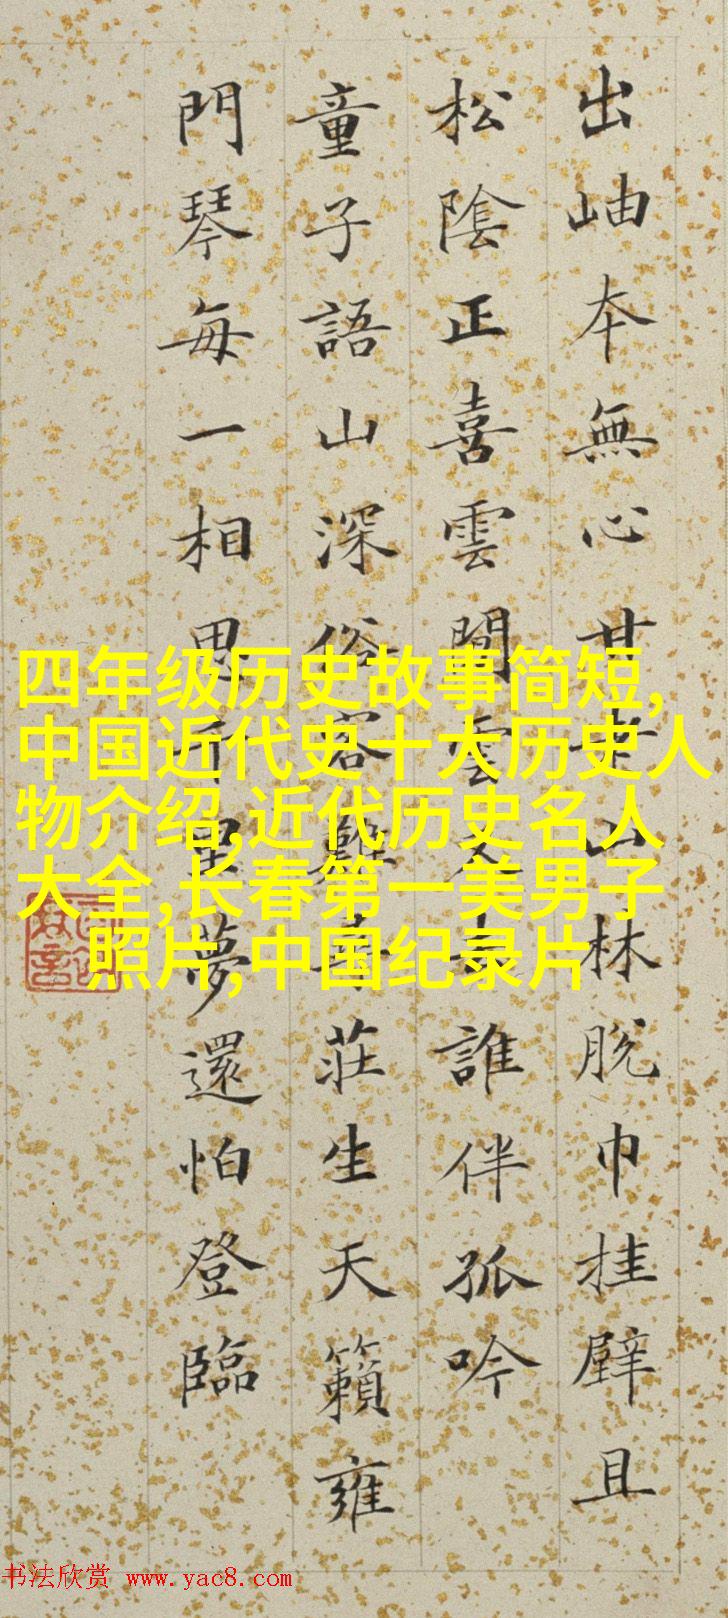 出岫本無心甘老山林脱巾挂壁且
松陰正喜雲閒雲又去誰伴孤吟
童子語山深俗客難尋莊生天籟雍
門琴每一相思千里夢還怕登臨
四年级历史故事简短,
中国近代史十大历史人
物介绍,近代历史名人
大全,长春第一美男子
照片,中国纪录片
书法欣赏 www.yac8.com